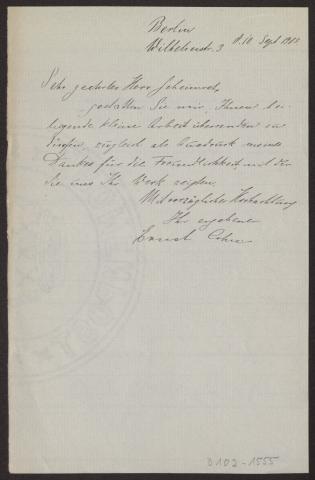 Berlin
Wilhelmstr. 3 d. 10 Sept 19
Sehr geehrter Herr Geheimrat,
gestatten Sie mir, Ihnen bei-
liegende kleine Arbeit übersenden zu
dürfen, zugleich als Ausdruck meines
Dankes für die Freundlichkeit mit der
Sie uns Ihr Werk zeigten.
Mit vorzüglicher Hochachtung
Ihr ergebener
Ernst Cohn
D102-1555